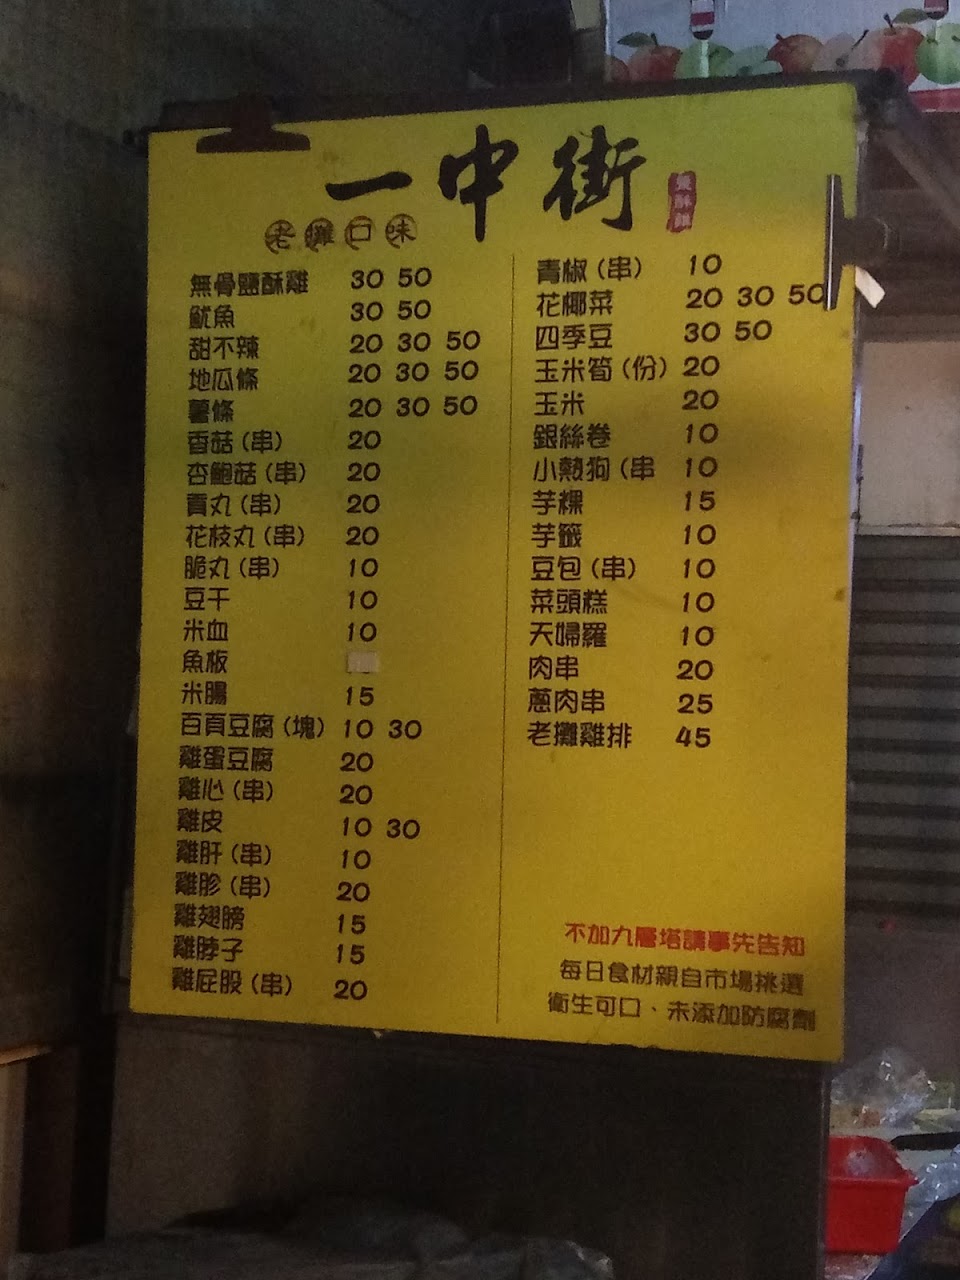 一中街
鹽酥雞
老攤口味
無骨鹽酥雞 30 50
魷魚 30 50
甜不辣 20 30 50
地瓜條 20 30 50
薯條 20 30 50
香菇(串) 20
杏鮑菇(串) 20
貢丸(串) 20
花枝丸(串) 20
脆丸(串) 10
豆干 10
米血 10
魚板
米腸 15
百頁豆腐(塊) 10 30
雞蛋豆腐 20
雞心(串) 20
雞皮 10 30
雞肝(串) 10
雞胗(串) 20
雞翅膀 15
雞脖子 15
雞屁股(串) 20
青椒(串) 10
花椰菜 20 30 50
四季豆 30 50
玉米筍(份) 20
玉米 20
銀絲卷 10
小熱狗(串 10
芋粿 15
芋籤 10
豆包(串) 10
菜頭糕 10
天婦羅 10
肉串 20
蔥肉串 25
老攤雞排 45
不加九層塔請事先告知
每日食材親自市場挑選
衛生可口、未添加防腐劑